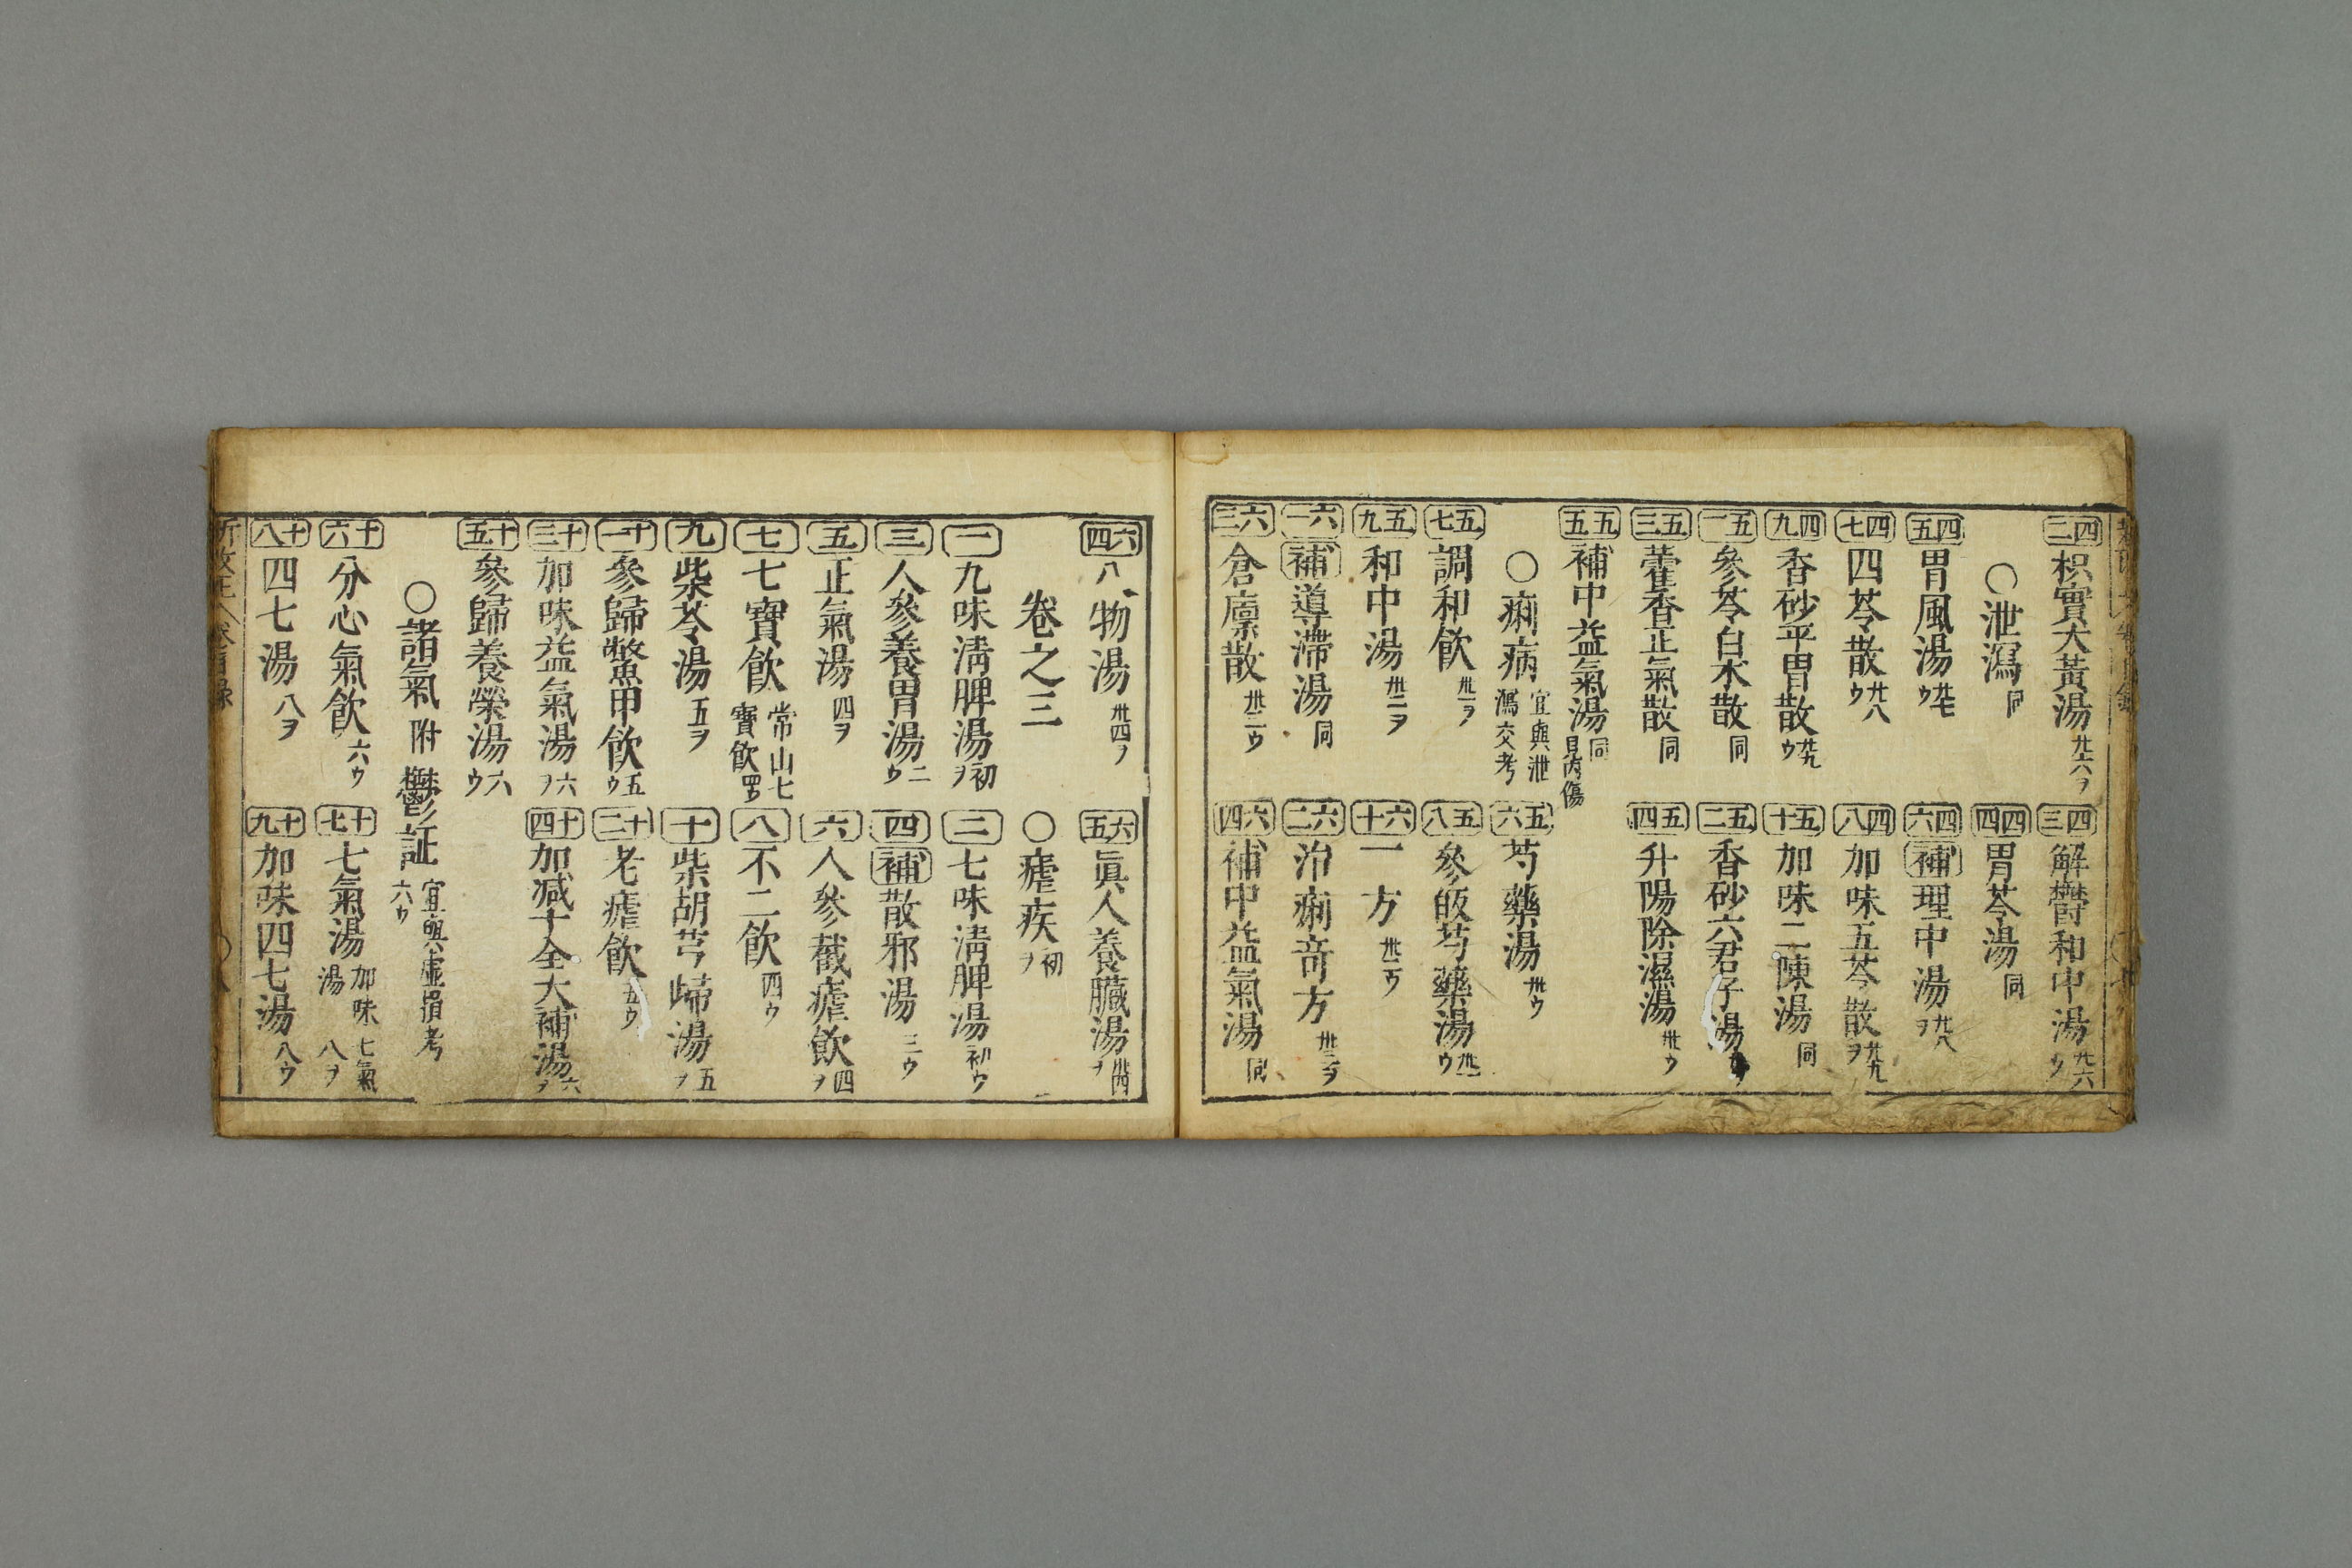 四二 枳實大黃湯 廿六ヲ
四三 解鬱和中湯 廿六ウ
〇泄瀉 同
四四 胃苓湯 同
四五 胃風湯 廿七ウ
四六 補理中湯 廿八ヲ
四七 四苓散 廿八ウ
四八 加味五苓散 廿九ヲ
四九 香砂平胃散 廿九ウ
五十 加味二陳湯 同
五一 參苓白朮散 同
五二 香砂六君子湯
五三 藿香正氣散 同
五四 升陽除濕湯 卅ウ
五五 補中益氣湯 同 見內傷
〇痢病 宜與泄瀉交考
五六 芍藥湯 卅ウ
五七 調和飲 卅一ヲ
五八 參皈芍藥湯 卅一ウ
五九 和中湯 卅二ヲ
六十 一方 卅二ウ
六一 補導滯湯 同
六二 治痢奇方 卅三ヲ
六三 倉廩散 卅三ウ
六四 補中益氣湯 同
六四 八物湯 卅四ヲ
六五 眞人養臟湯 卅四ヲ
卷之三
〇瘧疾 初ヲ
一 九味淸脾湯 初ヲ
二 七味淸脾湯 初ウ
三 人參養胃湯 二ウ
四 補散邪湯 三ウ
五 正氣湯 四ヲ
六 人參截瘧飲 四ヲ
七 七寶飲 常山七寶飲 四ウ
八 不二飲 四ウ
九 柴苓湯 五ヲ
十 柴胡芎歸湯 五ヲ
十一 參歸鱉甲飲 五ウ
十二 老瘧飲 五ウ
十三 加味益氣湯 六ヲ
十四 加減十全大補湯 六ヲ
十五 參歸養榮湯 六ウ
〇諸氣 附 鬱証 宜與虛損考 六ウ
十六 分心氣飲 六ウ
十七 七氣湯 加味七氣湯 八ヲ
十八 四七湯 八ヲ
十九 加味四七湯 八ウ